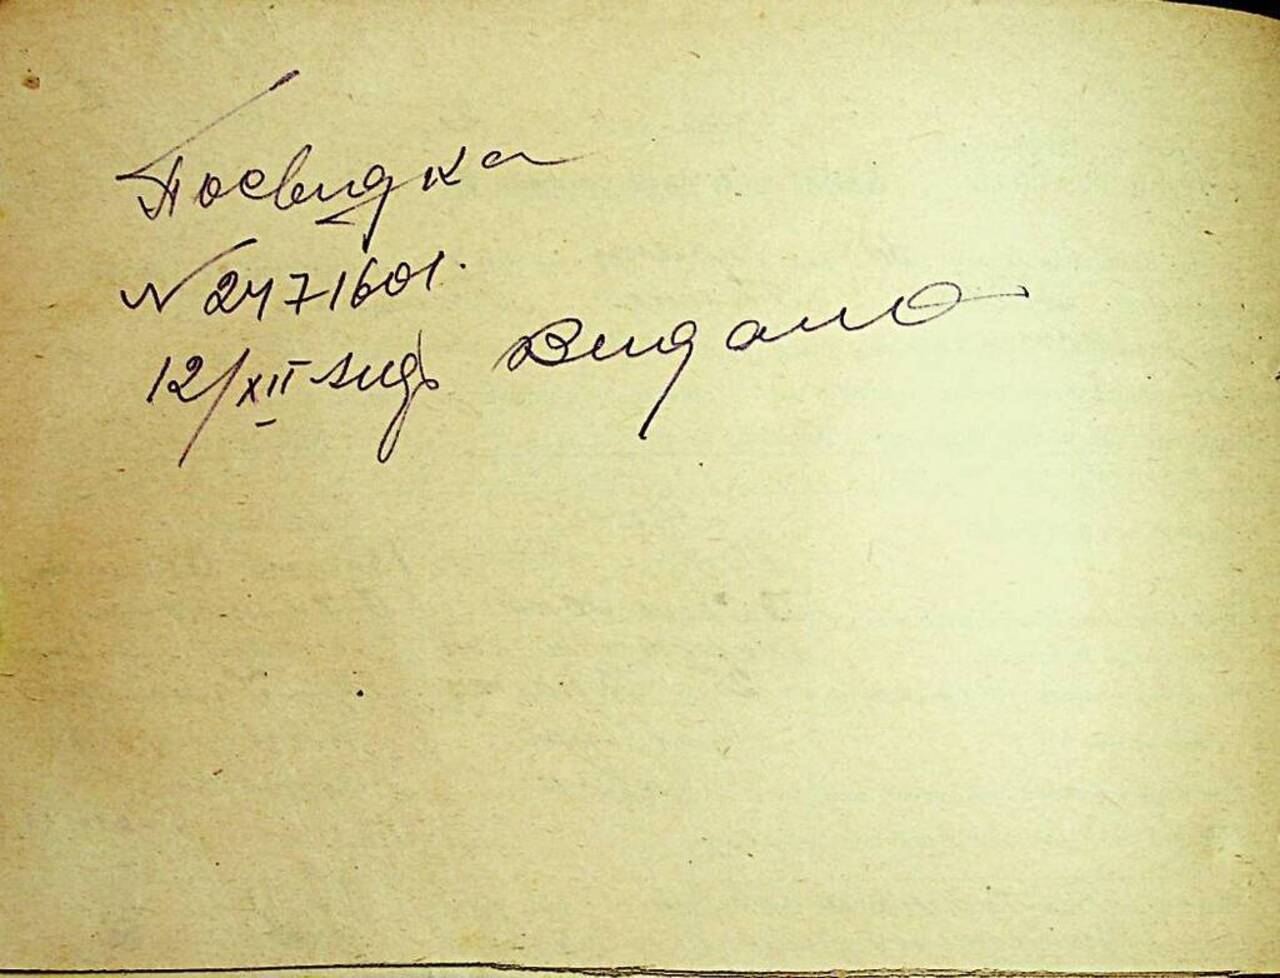 Посвидка
N 2471601.
12/XII Видано